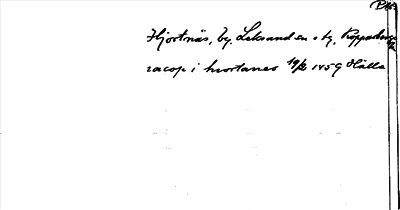 Hjortnäs, by, Leksand sn o tg, Kopparbergs
racop i hiortanes 19/2 1459 Hälla